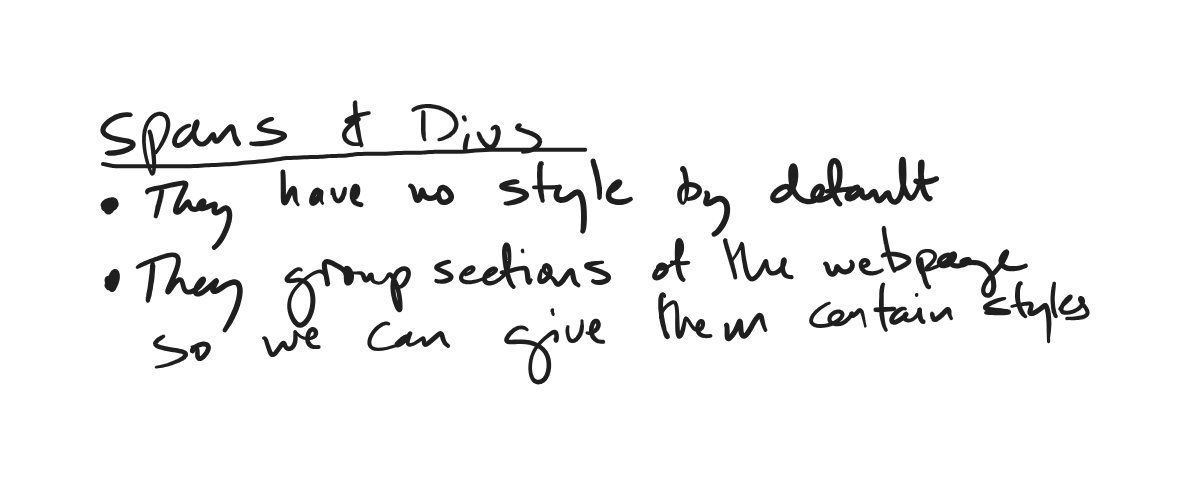 Spans & Divs
• They have no style by default
• They group sections of the webpage
so we can give them certain styles